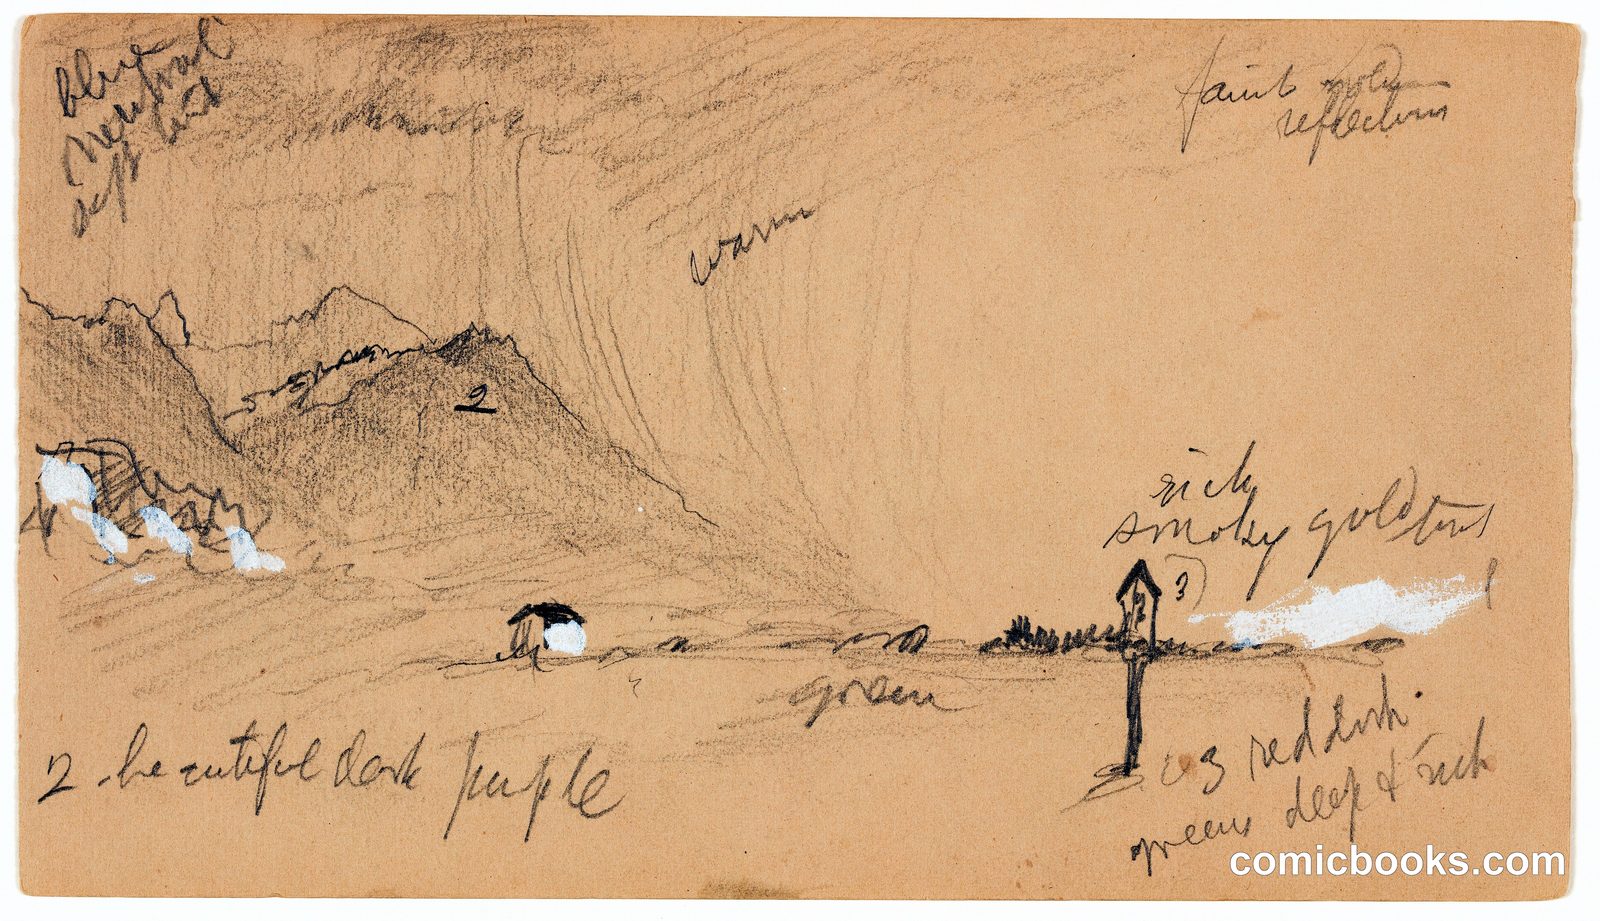 blue
neutral
soft
faint gold
reflections
warm
2
rich
smoky gold
3
green
2 beautiful dark purple
3 red dark
greens deep & rich
comicbooks.com